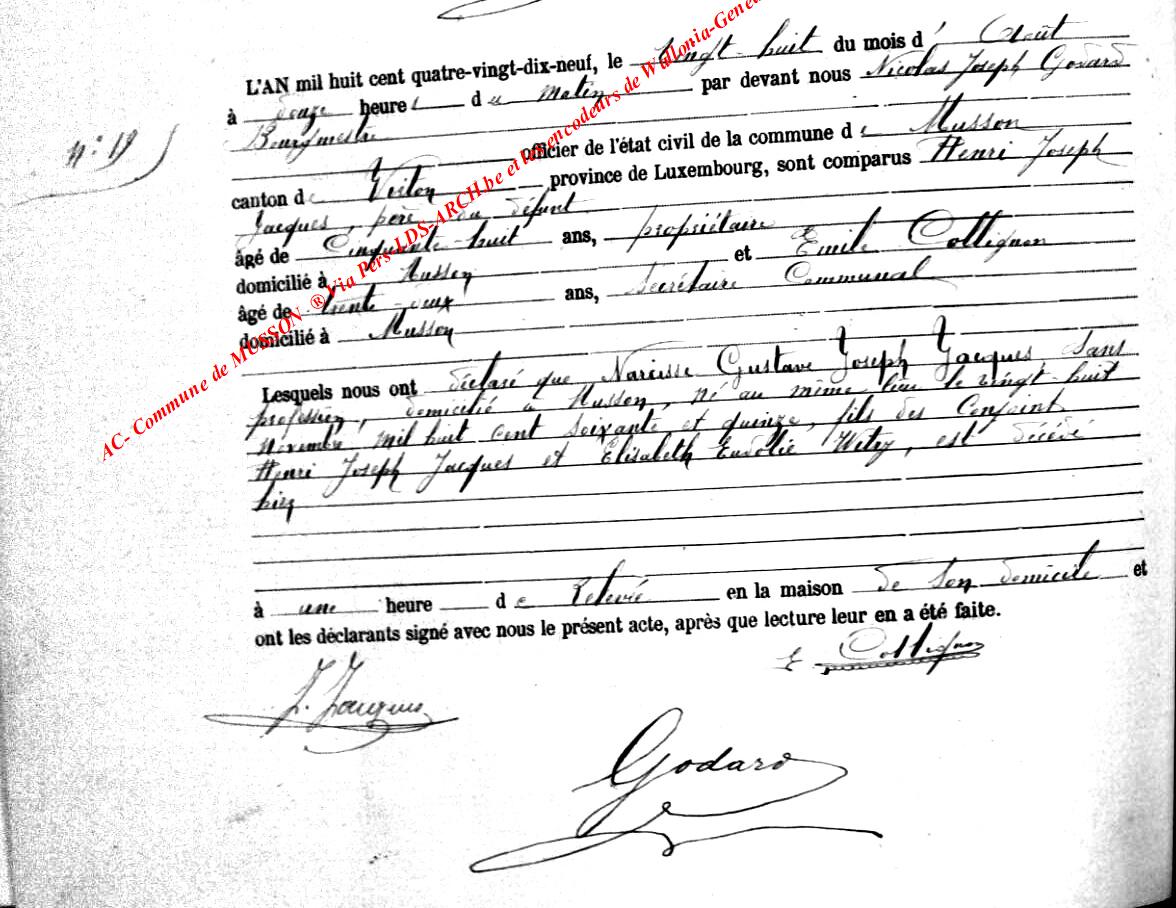 L'AN mil huit cent quatre-vingt-dix-neuf, le vingt huit du mois d' Août
à onze heures du matin par devant nous Nicolas Joseph Godard
Bourgmestre
n: 19
officier de l'état civil de la commune de Musson
canton de Virton province de Luxembourg, sont comparus Henri Joseph
Jacques, père du défunt
âgé de Cinquante-huit ans, propriétaire
domicilié à Musson et Emile Collignon
âgé de trente-deux ans, Secrétaire Communal
domicilié à Musson
Lesquels nous ont déclaré que Narcisse Gustave Joseph Jacques, sans
profession, domicilié à Musson, né au même lieu le vingt-huit
Novembre mil huit cent soixante et quinze, fils des Conjoint
Henri Joseph Jacques et Elisabeth Eudolie Witry, est décédé
hier
à une heure de Relevée en la maison de son domicile et
ont les déclarants signé avec nous le présent acte, après que lecture leur en a été faite.
E Collignon
J. Jacques
Godard
AC- Commune de MUSSON ® Via Pers-LDS-ARCH.be et les encodeurs de Wallonia-Genea